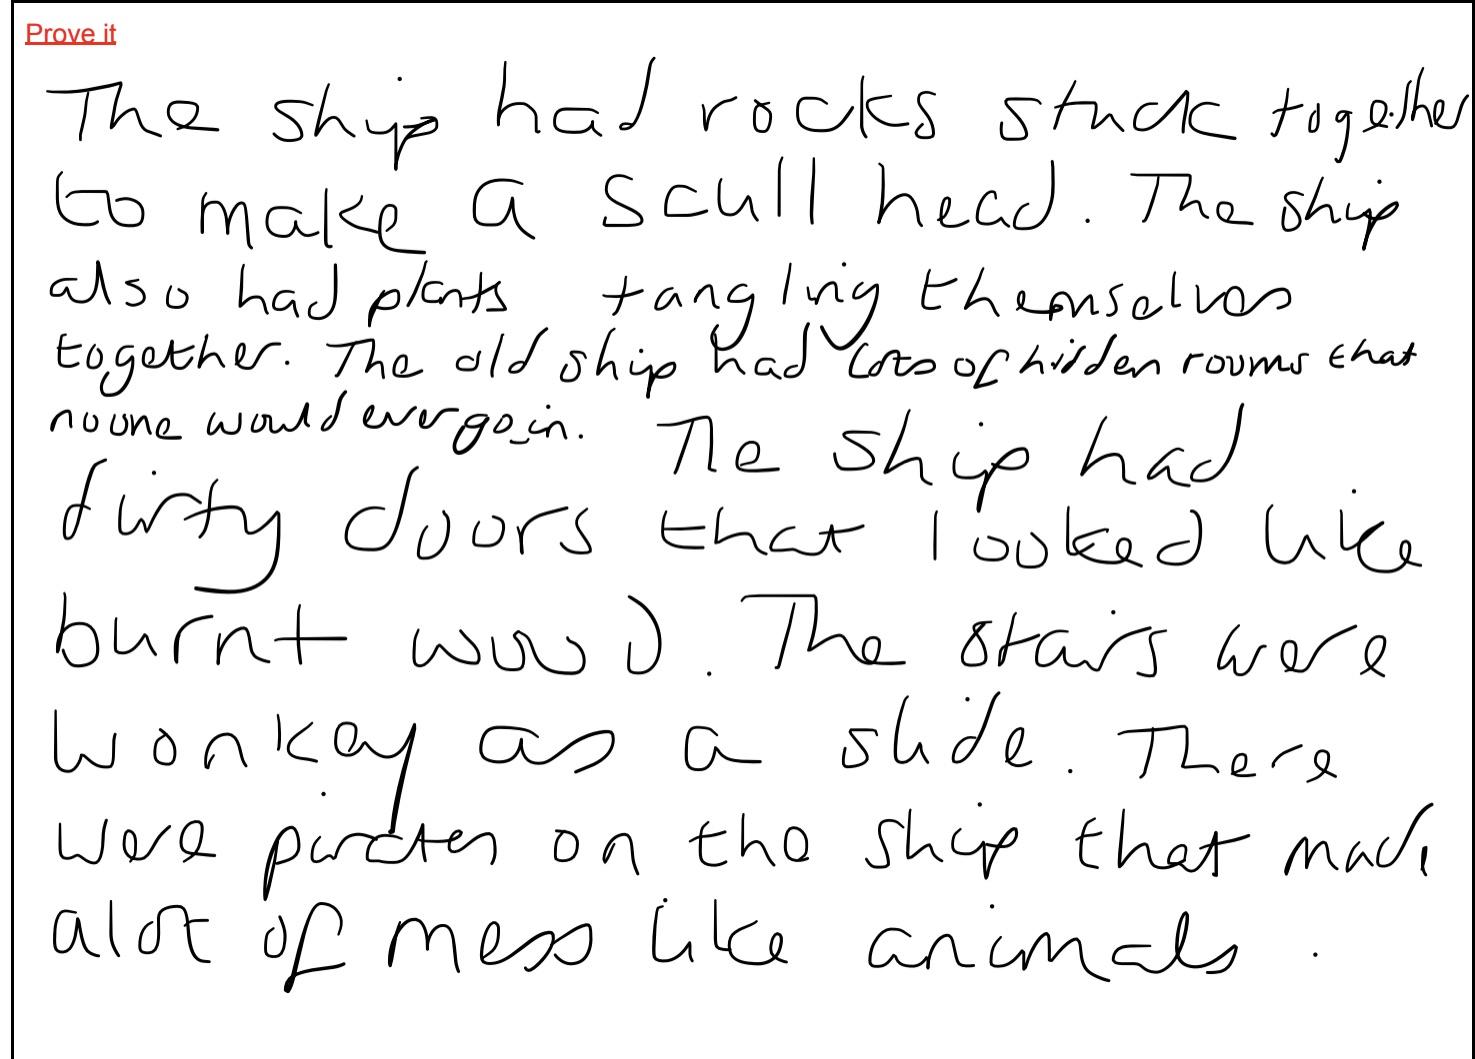 Prove it
The ship had rocks stuck together
to make a scull head. The ship
also had plants tangling themselves
together. The old ship had lots of hidden rooms that
no one would ever go in. The ship had
dirty doors that looked like
burnt wood. The stairs were
wonkey as a slide. There
were pirates on the ship that made
alot of mess like animals.